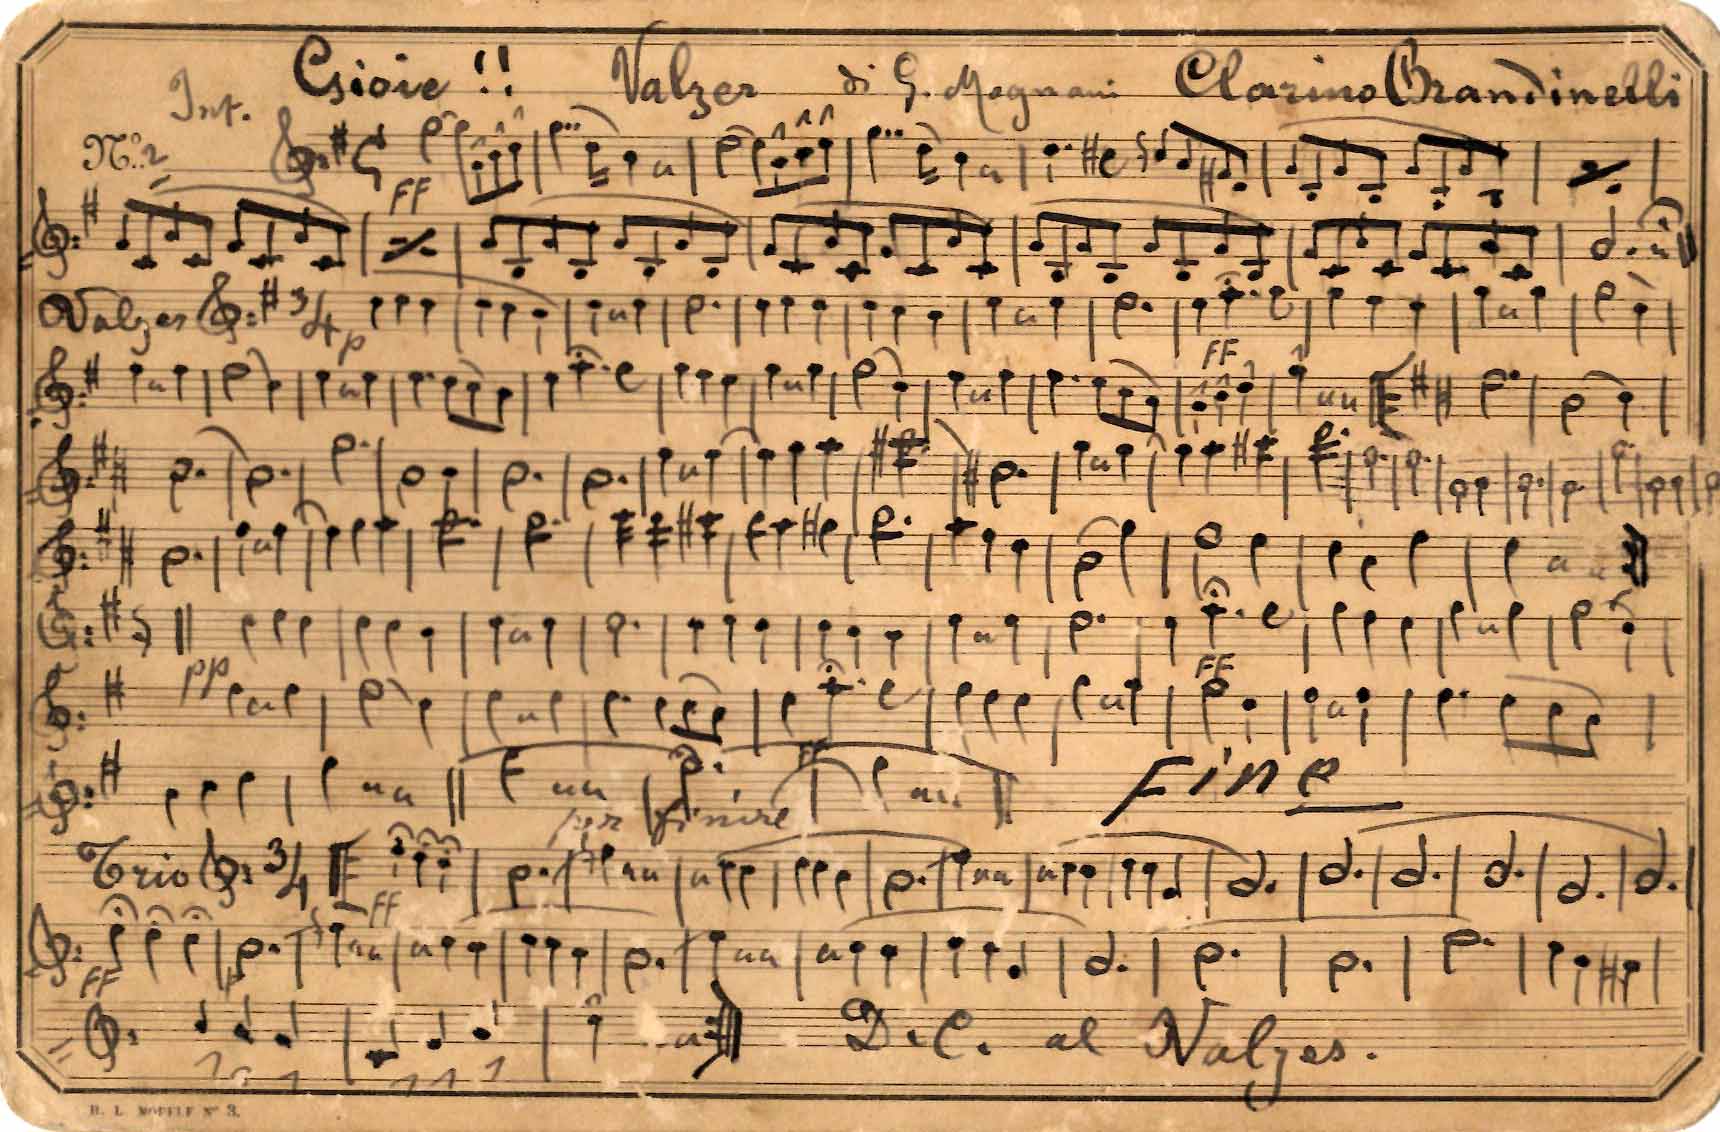 Int. Csioie !! Valzer di G. Magnani Clarino Brandinelli
N.º 2
FF
Valzer 3/4 p
FF
pp
FF
FF
per finire
Fine
Trio 3/4
FF
FF p
D.C. al Valzer.
B. L. MODELE Nº 3.